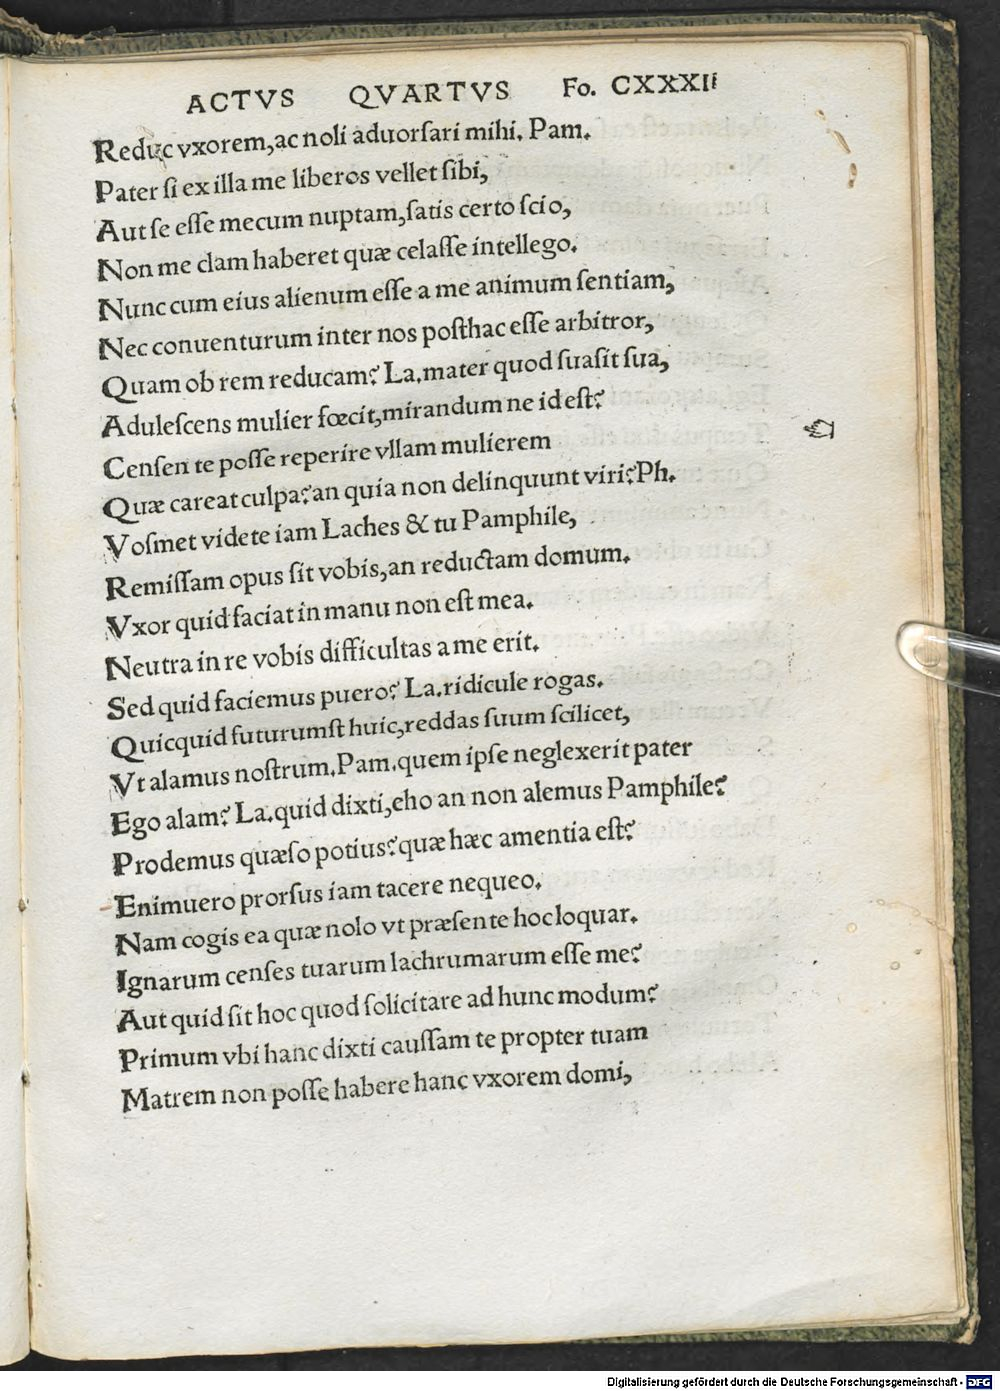 ACTVS QVARTVS Fo. CXXXII
Reduc vxorem,ac noli aduorſari mihi. Pam.
Pater ſi ex illa me liberos vellet ſibi,
Aut ſe eſſe mecum nuptam,ſatis certo ſcio,
Non me clam haberet quæ celaſſe intellego.
Nunc cum eius alienum eſſe a me animum ſentiam,
Nec conuenturum inter nos poſthac eſſe arbitror,
Quam ob rem reducam? La.mater quod ſuaſit ſua,
Aduleſcens mulier fœcit,mirandum ne id eſt?
Cenſen te poſſe reperire vllam mulierem
Quæ careat culpa?an quia non delinquunt viri?Ph.
Voſmet videte iam Laches & tu Pamphile,
Remiſſam opus ſit vobis,an reductam domum.
Vxor quid faciat in manu non eſt mea.
Neutra in re vobis difficultas a me erit.
Sed quid faciemus puero? La.ridicule rogas.
Quicquid futurumſt huic,reddas ſuum ſcilicet,
Vt alamus noſtrum.Pam.quem ipſe neglexerit pater
Ego alam? La.quid dixti,eho an non alemus Pamphile?
Prodemus quæſo potius?quæ hæc amentia eſt?
Enimuero prorſus iam tacere nequeo.
Nam cogis ea quæ nolo vt præſente hoc loquar.
Ignarum cenſes tuarum lachrumarum eſſe me?
Aut quid ſit hoc quod ſolicitare ad hunc modum?
Primum vbi hanc dixti cauſſam te propter tuam
Matrem non poſſe habere hanc vxorem domi,
Digitalisierung gefördert durch die Deutsche Forschungsgemeinschaft - DFG